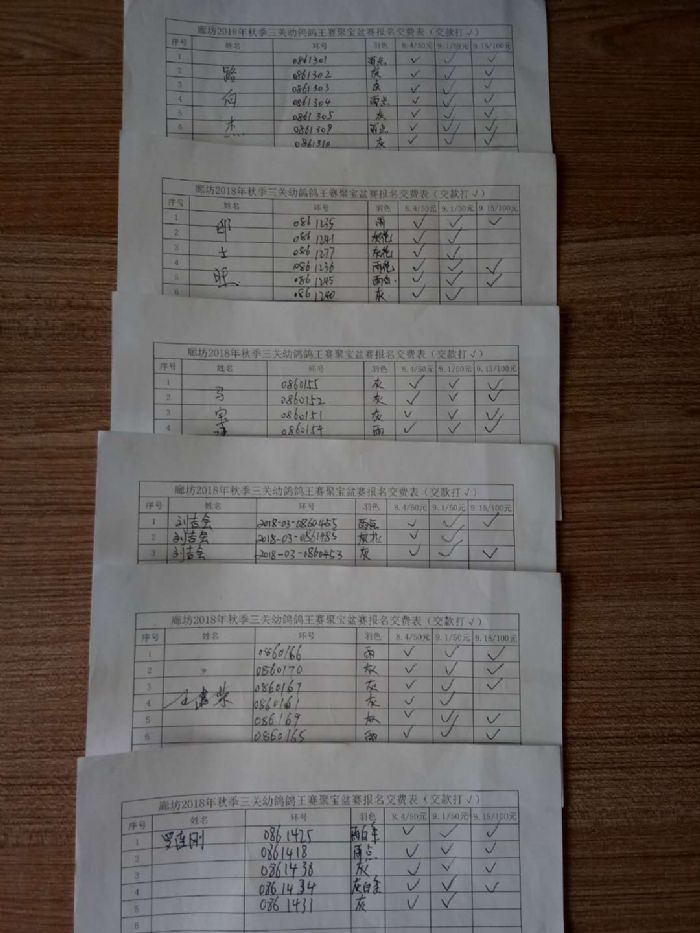 廊坊2018年秋季三关幼鸽鸽王赛聚宝盆赛报名交费表（交款打√）
序号 姓名 环号 羽色 8.4/50元 9.1/50元 9.15/100元
1 0861301 雨点 √ √ √
2 路 0861302 灰 √ √ √
3 0861303 灰 √ √ √
4 伯 0861304 雨点 √ √ √
5 0861305 灰 √ √ √
6 杰 0861309 雨点 √ √ √
0861310 灰 √ √ √
廊坊2018年秋季三关幼鸽鸽王赛聚宝盆赛报名交费表（交款打√）
序号 姓名 环号 羽色 8.4/50元 9.1/50元 9.15/100元
1 0861235 雨 √ √ √
2 0861241 灰花 √ √
3 士 0861277 灰花 √ √
4 0861236 雨花 √ √ √
5 照 0861245 雨点 √ √ √
6 0861240 灰 √ √
廊坊2018年秋季三关幼鸽鸽王赛聚宝盆赛报名交费表（交款打√）
序号 姓名 环号 羽色 8.4/50元 9.1/50元 9.15/100元
1 0860155 灰 √ √ √
2 马 0860152 灰 √ √ √
3 宝 0860151 灰 √ √ √
4 0860154 雨 √ √ √
廊坊2018年秋季三关幼鸽鸽王赛聚宝盆赛报名交费表（交款打√）
序号 姓名 环号 羽色 8.4/50元 9.1/50元 9.15/100元
1 刘吉会 2018-03-0860455 雨点 √ √ √
2 刘吉会 2018-03-0861983 灰花 √ √
3 刘吉会 2018-03-0860453 灰 √ √ √
廊坊2018年秋季三关幼鸽鸽王赛聚宝盆赛报名交费表（交款打√）
序号 姓名 环号 羽色 8.4/50元 9.1/50元 9.15/100元
1 0860166 雨 √ √ √
2 0860170 灰 √ √ √
3 0860167 灰 √ √ √
4 0860161 灰 √ √
5 086169 灰 √ √ √
6 0860165 雨 √ √ √
廊坊2018年秋季三关幼鸽鸽王赛聚宝盆赛报名交费表（交款打√）
序号 姓名 环号 羽色 8.4/50元 9.1/50元 9.15/100元
1 罗连刚 0861425 雨白条 √ √ √
2 0861418 雨点 √ √ √
3 0861438 灰 √ √ √
4 0861434 灰白条 √ √ √
5 0861431 灰 √ √
6